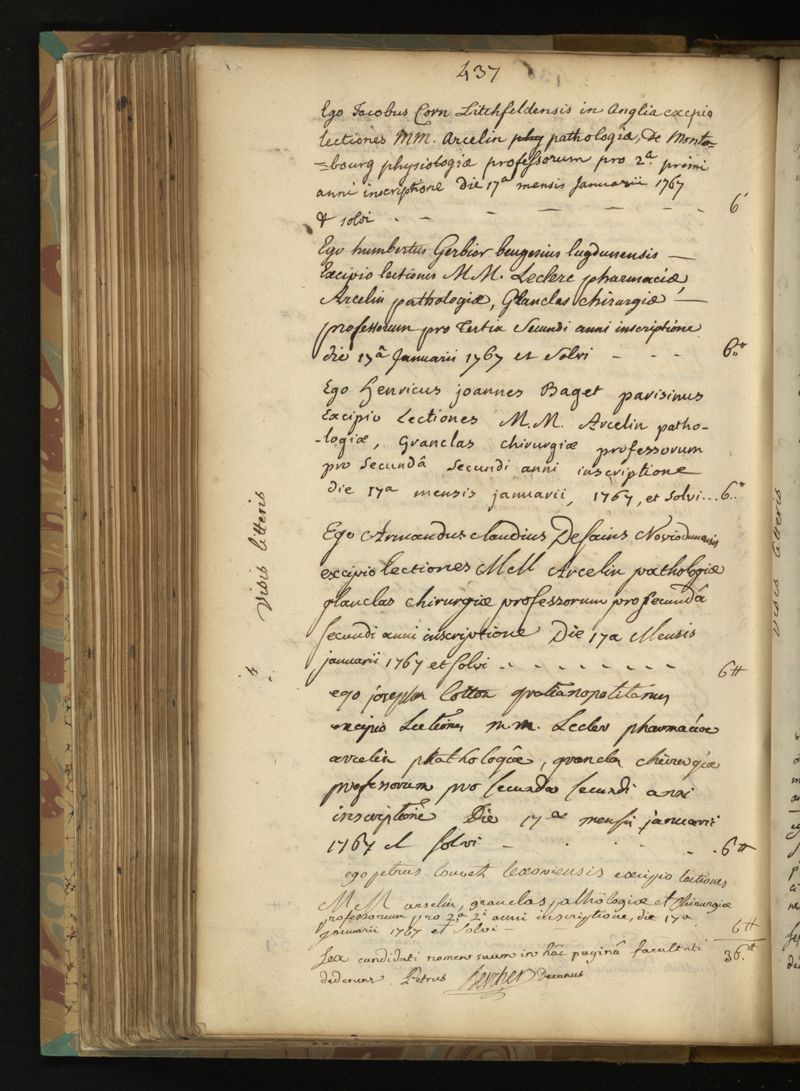 437
Ego Jacobus Corn Litchfeldensis in Anglia excipio
lectiones MM. Arcelin pathologiæ, De Monta-
=bourg physiologiæ professorum pro 2ª. primi
anni inscriptione Die 17ª mensis Januarii 1767
& solvi . - - - - - - - 6
Ego humbertus Gerbior beugesius lugdunensis —
Excipio lectiones MM. Leclerc pharmaciæ,
Arcelin pathologiæ, Glanclas chirurgiæ —
professorum pro Tertia Secundi anni inscriptione
die 17ª Januarii 1767 et Solvi - - - 6.tt
Ego Henricus joannes Baget parisinus
Excipio Lectiones M.M. Arcelin patho-
-logiæ, Granclas chirurgiæ professorum
pro Secundâ Secundi anni inscriptione
die 17a mensis januarii, 1767, et solvi... 6.tt
Visis litteris
Ego Armandus claudius Desains Noviodunensis
excipio lectiones MM Arcelin pathologiæ
glanclas chirurgiæ professorum pro secundâ
secundi anni inscriptione Die 17a Mensis
januarii 1767 et solvi . . - - - - - - 6tt
ego joseph Cotton gratianopolitanus
excipio Lectiones m.m. Lecler pharmaciæ
arcelin phathologiæ, grancla chirurgiæ
professorum pro secunda secundi anni
inscriptione Die 17a mensis januarii
1767 et solvi - . . - . 6tt
ego petrus louvet lexoviensis excipio lectiones
MM arselin, granclas pathologiæ et chirurgiæ
professorum pro 2ª 2i anni inscriptione, die 17a
januarii 1767 et Solvi — 6tt
Sex candidati nomen suum in hâc paginâ facultati 36.tt
dederunt. Petrus Bercher Decanus